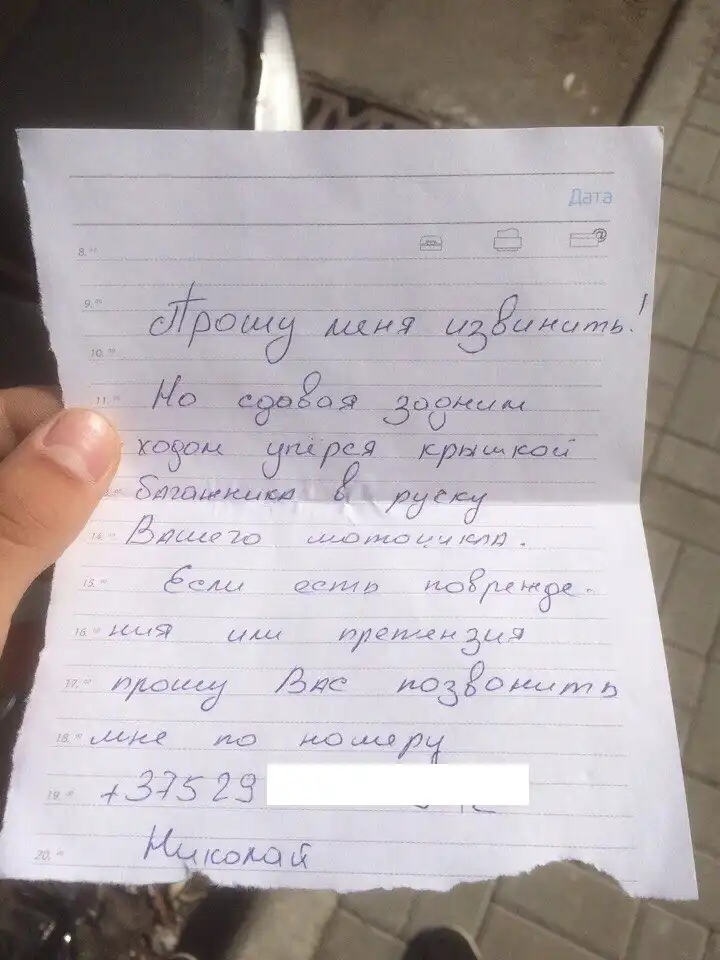 Дата
8.⁰⁰
9.⁰⁰
Прошу меня извинить!
10.⁰⁰
11.⁰⁰ Но сдавая задним
ходом упёрся крышкой
багажника в руску
14.⁰⁰ Вашего мотоцикла.
15.⁰⁰ Если есть поврежде-
16.⁰⁰ ния или претензия
17.⁰⁰ прошу Вас позвонить
18.⁰⁰ мне по номеру
19.⁰⁰ +37529
20.⁰⁰ Николай